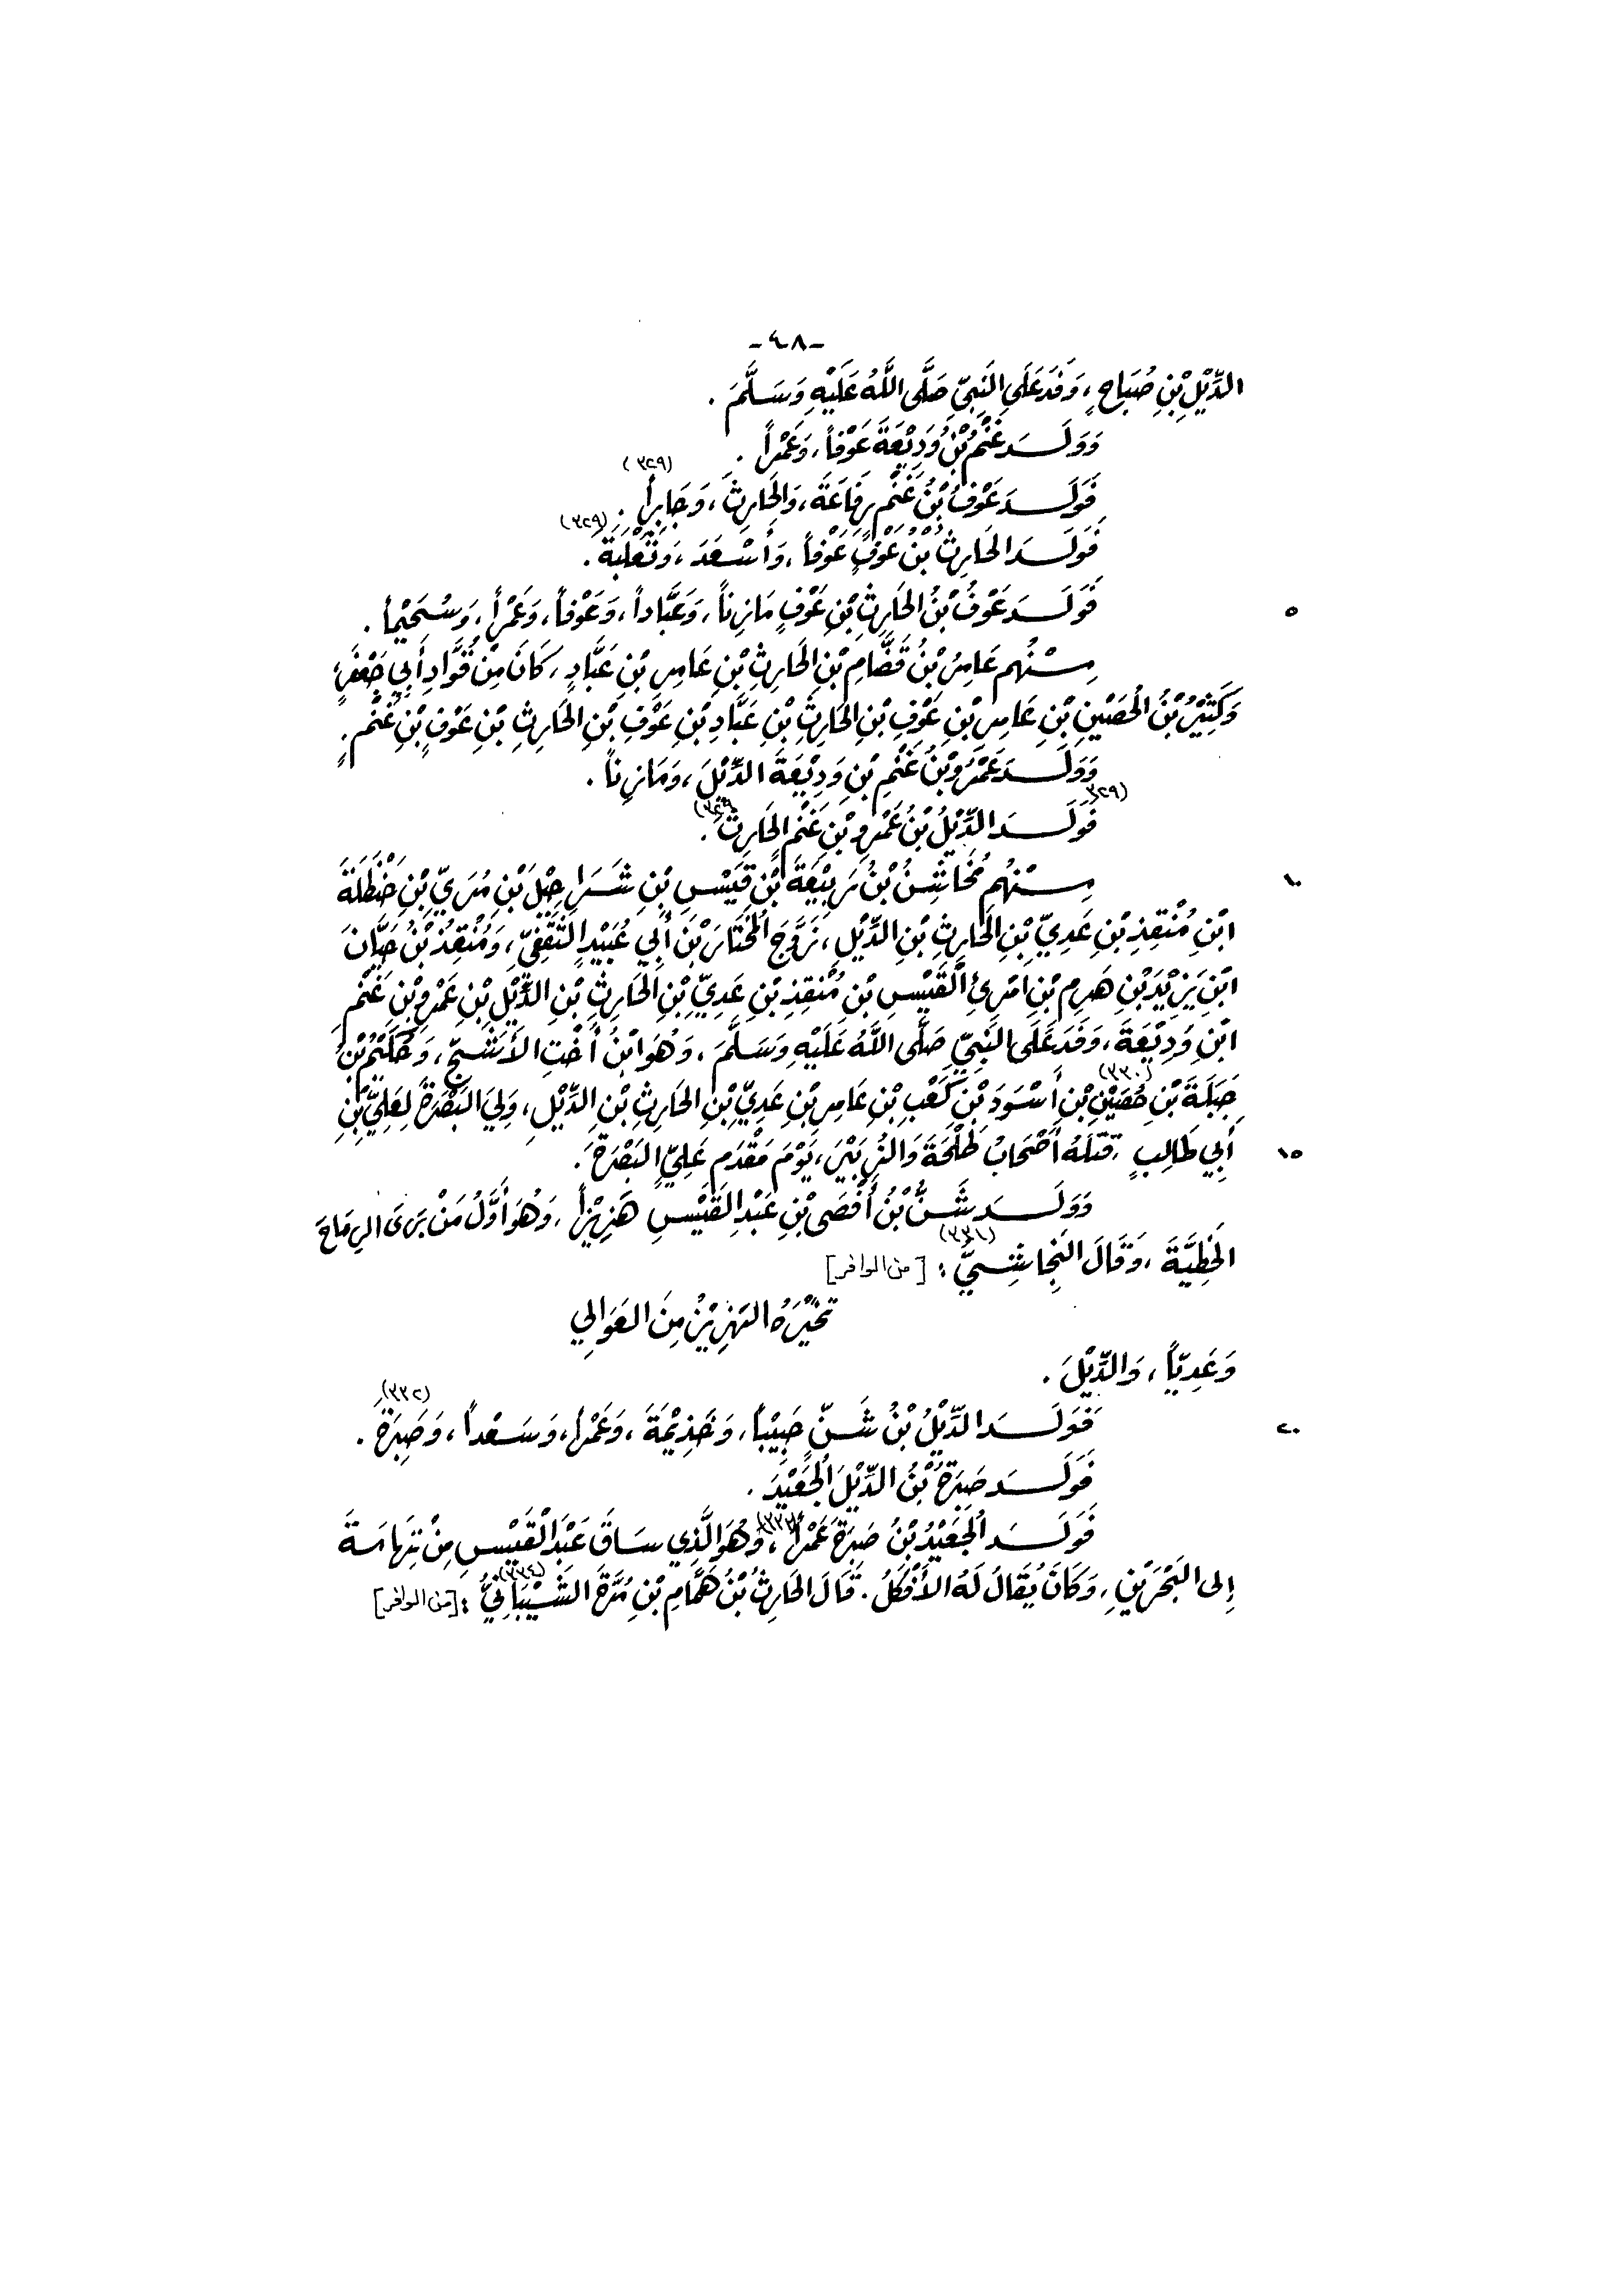 -٤٨-
الدِّيْلِ بْنِ صُبَاحٍ، وَفَدَ عَلَى النَّبِيِّ صَلَّى اللَّهُ عَلَيْهِ وَسَلَّمَ.
وَوَلَدَ غَنْمُ بْنُ وَدِيْعَةَ عَوْفاً، وَعَمْراً.
فَوَلَدَ عَوْفُ بْنُ غَنْمٍ رِفَاعَةَ، وَالحَارِثَ، وَجَابِراً (٣٢٩).
فَوَلَدَ الحَارِثُ بْنُ عَوْفٍ عَوْفاً، وَأَسْعَدَ، وَثَعْلَبَةَ (٣٢٩).
٥ فَوَلَدَ عَوْفُ بْنُ الحَارِثِ بْنِ عَوْفٍ مَازِناً، وَعَبَّاداً، وَعَوْفاً، وَعَمْراً، وَسُحَيْماً.
مِنْهُم عَامِرُ بْنُ قَضَّامِ بْنِ الحَارِثِ بْنِ عَامِرِ بْنِ عَبَّادٍ، كَانَ مِنْ قُوَّادِ أَبِي جَعْفَرٍ،
وَكَثِيْرُ بْنُ الحُصَيْنِ بْنِ عَامِرِ بْنِ عَوْفِ بْنِ الحَارِثِ بْنِ عَبَّادِ بْنِ عَوْفِ بْنِ الحَارِثِ بْنِ عَوْفِ بْنِ غَنْمٍ.
وَوَلَدَ عَمْرُو بْنُ غَنْمِ بْنِ وَدِيْعَةَ الدِّيْلَ، وَمَازِناً.
فَوَلَدَ (٣٢٩) الدِّيْلُ بْنُ عَمْرِو بْنِ غَنْمٍ الحَارِثَ (٣٢٩).
١٠ مِنْهُم مُخَاشِنُ بْنُ رَبِيْعَةَ بْنِ قَيْسِ بْنِ شَرَاحِيْلَ بْنِ مُرَيِّ بْنِ حَنْظَلَةَ
ابْنِ مُنْقِذِ بْنِ عَدِيِّ بْنِ الحَارِثِ بْنِ الدِّيْلِ، زَوَّجَ المُخْتَارَ بْنَ أَبِي عُبَيْدٍ الثَّقَفِيِّ، وَمُنْقِذُ بْنُ حَيَّانَ
ابْنِ يَزِيْدَ بْنِ هَرِمِ بْنِ امْرِئِ القَيْسِ بْنِ مُنْقِذِ بْنِ عَدِيِّ بْنِ الحَارِثِ بْنِ الدِّيْلِ بْنِ عَمْرِو بْنِ غَنْمِ
ابْنِ وَدِيْعَةَ، وَفَدَ عَلَى النَّبِيِّ صَلَّى اللَّهُ عَلَيْهِ وَسَلَّمَ، وَهُوَ ابْنُ أُخْتِ الأَشَجِّ، وَحُكَيْمُ بْنُ
جَبَلَةَ بْنِ حُصَيْنِ (٣٣٠) بْنِ أَسْوَدَ بْنِ كَعْبِ بْنِ عَامِرِ بْنِ عَدِيِّ بْنِ الحَارِثِ بْنِ الدِّيْلِ، وَلِيَ البَصْرَةَ لِعَلِيِّ بْنِ
١٥ أَبِي طَالِبٍ، قَتَلَهُ أَصْحَابُ طَلْحَةَ وَالزُّبَيْرِ، يَوْمَ مَقْدَمِ عَلِيٍّ البَصْرَةَ.
وَوَلَدَ شَنُّ بْنُ أَفْصَى بْنِ عَبْدِ القَيْسِ هَزِيْزاً، وَهُوَ أَوَّلُ مَنْ بَرَى الرِّمَاحَ
الخَطِّيَّةَ، وَقَالَ النَّجَاشِيُّ (٣٣١): [من الوافر]
تَخَيَّرَهُ الهَزِيْزُ مِنَ العَوَالِي
وَعَدِيّاً، وَالدِّيْلَ.
٢٠ فَوَلَدَ الدِّيْلُ بْنُ شَنٍّ حَبِيْباً، وَجَذِيْمَةَ، وَعَمْراً، وَسَعْداً، وَصَبِرَةَ (٣٣٢).
فَوَلَدَ صَبِرَةُ بْنُ الدِّيْلِ الجُعَيْدَ.
فَوَلَدَ الجُعَيْدُ بْنُ صَبِرَةَ عَمْراً (٣٣٣)، وَهُوَ الَّذِي سَاقَ عَبْدَ القَيْسِ مِنْ تِهَامَةَ
إِلى البَحْرَيْنِ، وَكَانَ يُقَالُ لَهُ الأَفْكَلُ. قَالَ الحَارِثُ بْنُ هَمَّامِ بْنِ مُرَّةَ الشَّيْبَانِيُّ (٣٣٤): [من الوافر]